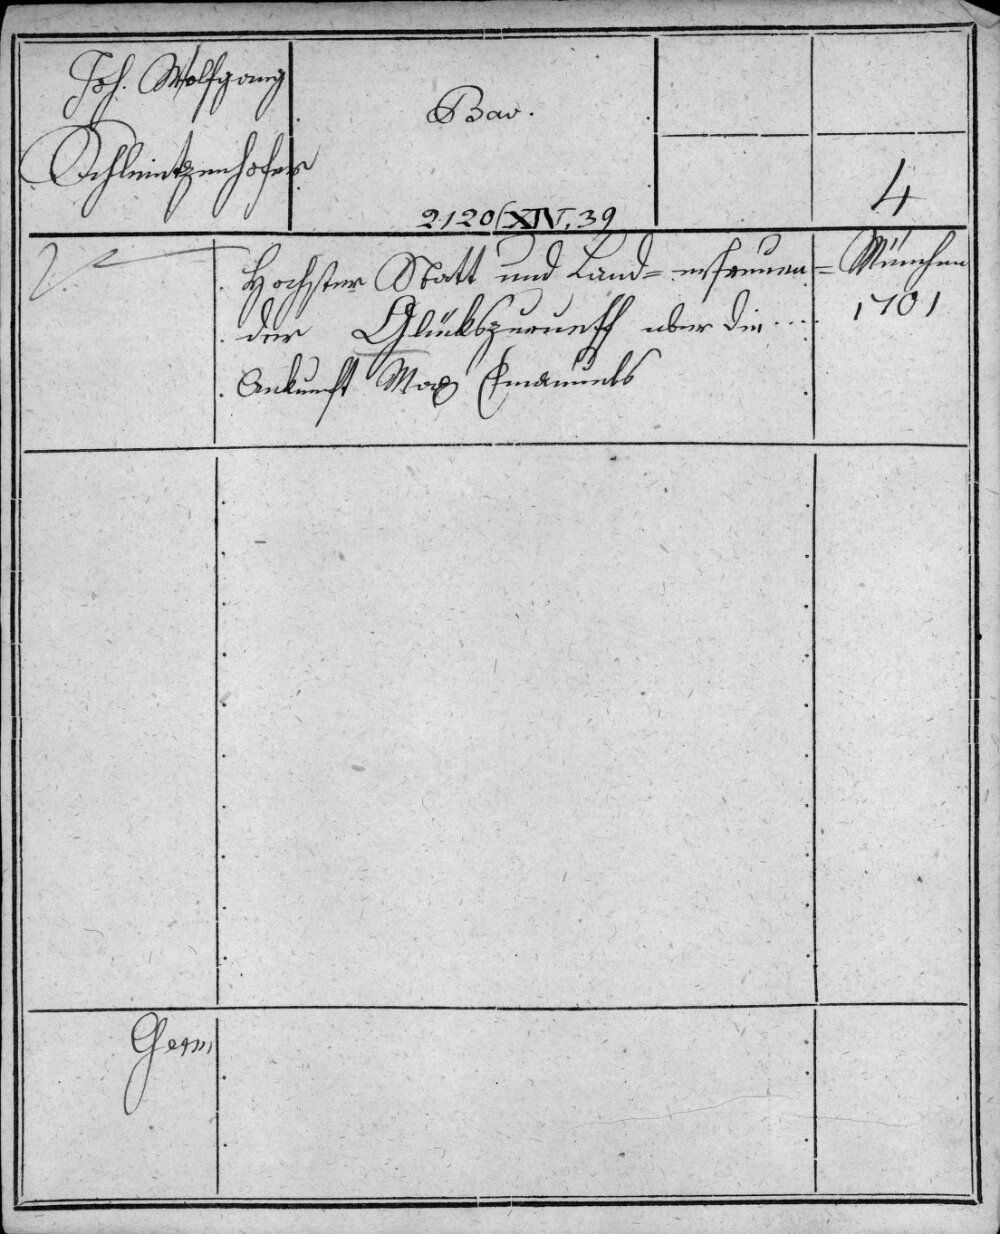 Joh. Wolfgang
Schleintzenhofer
Bav.
2120/XIV,39
4
Höchster Statt und Land= erfreuen=
der Glükszurueff uber die ....
Ankunft Max Emanuels
München
1701
Germ